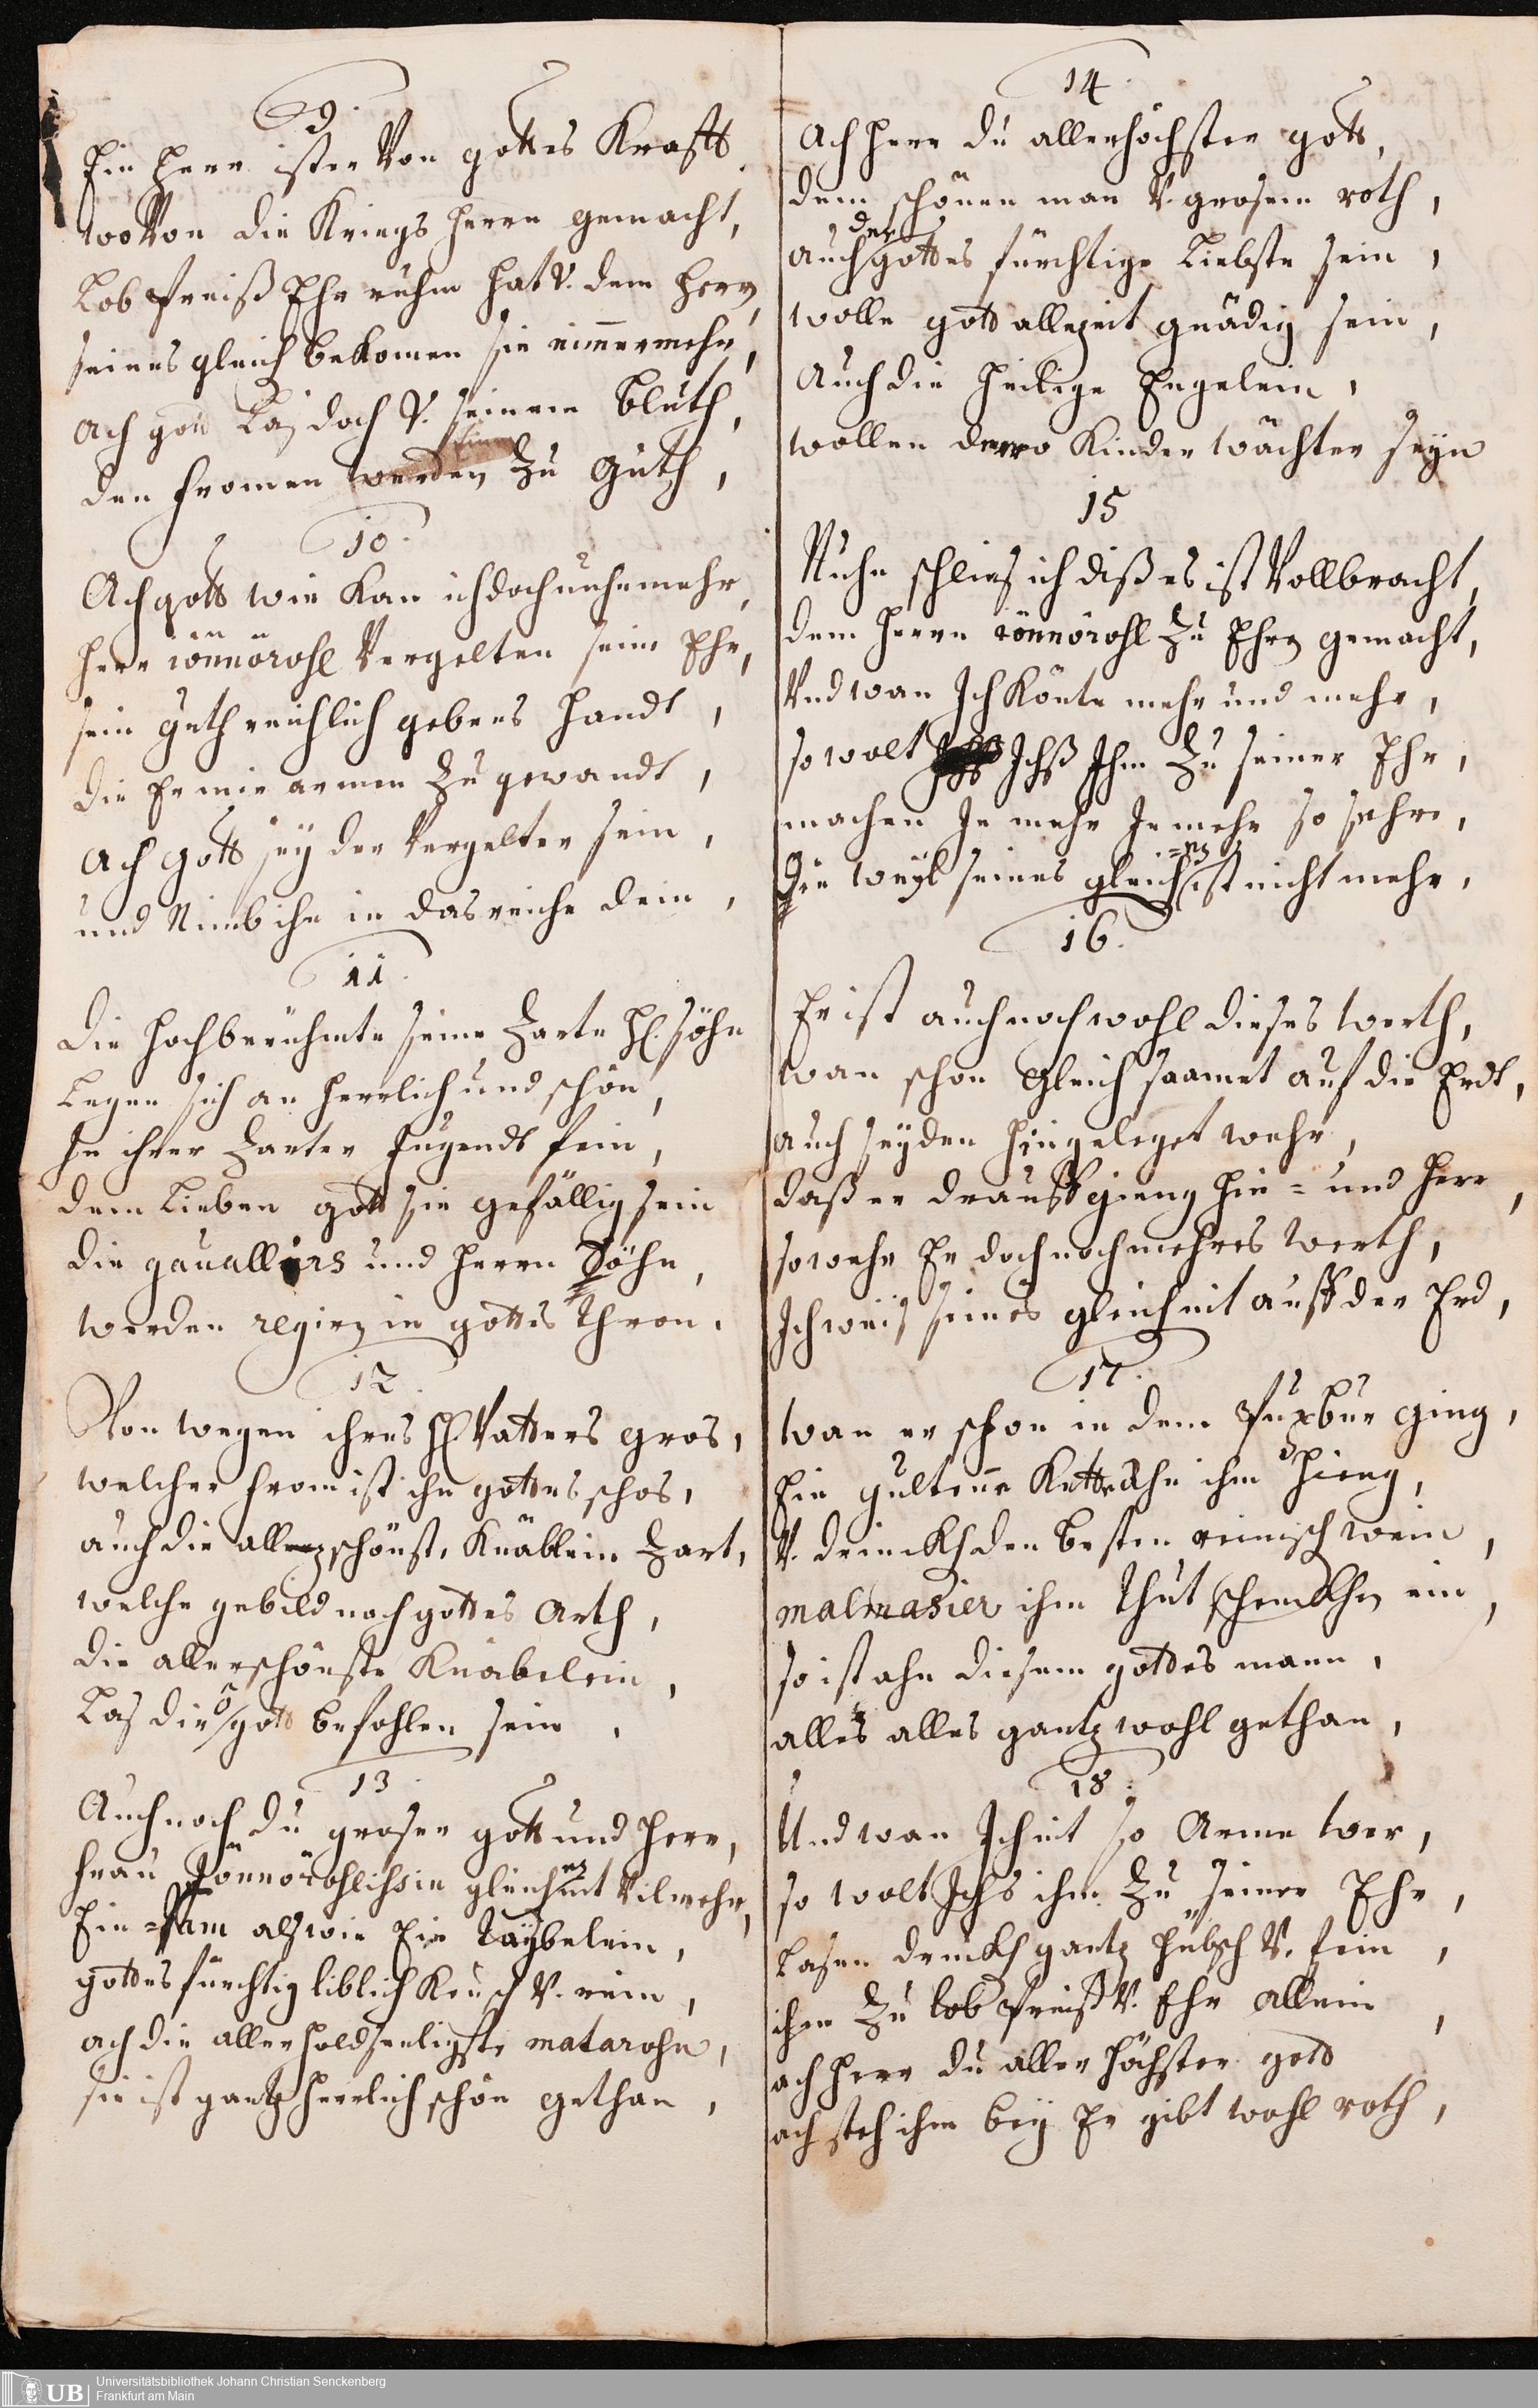 9.
Ein Herr ister Von gottes Krafft
wo Von die Kriegs Herrn gemacht,
Lob Preiß Ehr ruhm hat V. dem Herrn,
seines gleich bekomen sie nimermehr,
Ach gott Las doch V. seinem Bluth,
den fromen werden Zu Guth,
10.
Ach gott wie Kan ich doch nuhnmehr,
Herr iönnöröhl Vergelten seine Ehr,
sein guth reichlich gebens Handt,
die Er mir armen Zu gewandt,
Ach Gott sey der Vergelter sein,
und Nimb ihn in das reiche dein,
11.
Die Hochberühmte seine Zarte H. söhn
Legen sich an Herrlich und schön,
In ihrer Zarter Jugendt fein,
dem Lieben gott sie gefällig sein
die gauallirs und Herrn Söhn,
werden regirn in gottes Thron.
12.
Von wegen ihres H Vatters gros,
welcher from ist ihn gottes schos,
auch die allerschönste Knäblein Zart,
welche gebild nach gottes Arth,
die allerschönste Knäbelein,
Las dir o gott befohlen sein,
13.
Auch noch du groser gott und Herr,
frau Jönnöröhlihsin gleichen nit Vilmehr,
Ein =sam als wie Ein Taÿbelein,
gottes fürchtig liblich Keusch V. rein,
ach die allerholdseeligste matarohn,
sie ist gantz Herrlich schön gethan,
14.
Ach Herr du allerhöchster gott,
dem schönen man V. grosem roth,
auch der gottes fürchtige Liebste sein,
wolle gott allezeit gnädig sein,
Auch die Heilige Engelein,
wollen derro Kinder wächter seyn
15
Nuhn schlies ich diß es ist Vollbracht,
dem Herrn iönnöröhl Zu Ehrn gemacht,
Vnd wan Ich Könte mehr und mehr,
so wolt Ichß Ihm Zu seiner Ehr,
machen Je mehr Je mehr so sehre,
Die weyl seines gleich =en ist nicht mehr,
16.
Er ist auch noch wohl dieses werth,
wan schon gleich saamet auf die Erdt,
auch seyden hingeleget wehr,
daß er drauff gieng hin = und Herr,
so wehr Er doch noch mehres werth,
Ich weis seines gleich nit auff der Erd,
17.
wan er schon in dem Purbur ging,
Ein gultene Kette ahn ihm hieng,
V. drinckh den besten reinisch wein,
malmasier ihm thut schenckhen ein,
so ist ahn diesem gottes mann,
alles alles gantz wohl gethan,
18.
Und wan Ich nit so Arme wer,
so wolt Ichs ihm Zu seiner Ehr,
Lasen druckh gantz hübsch V. fein,
ihm Zu lob Preiß V. Ehr allein,
ach Herr du aller höchster gott
ach steh ihm beÿ Er gibt wohl roth,
UB
Universitätsbibliothek Johann Christian Senckenberg
Frankfurt am Main